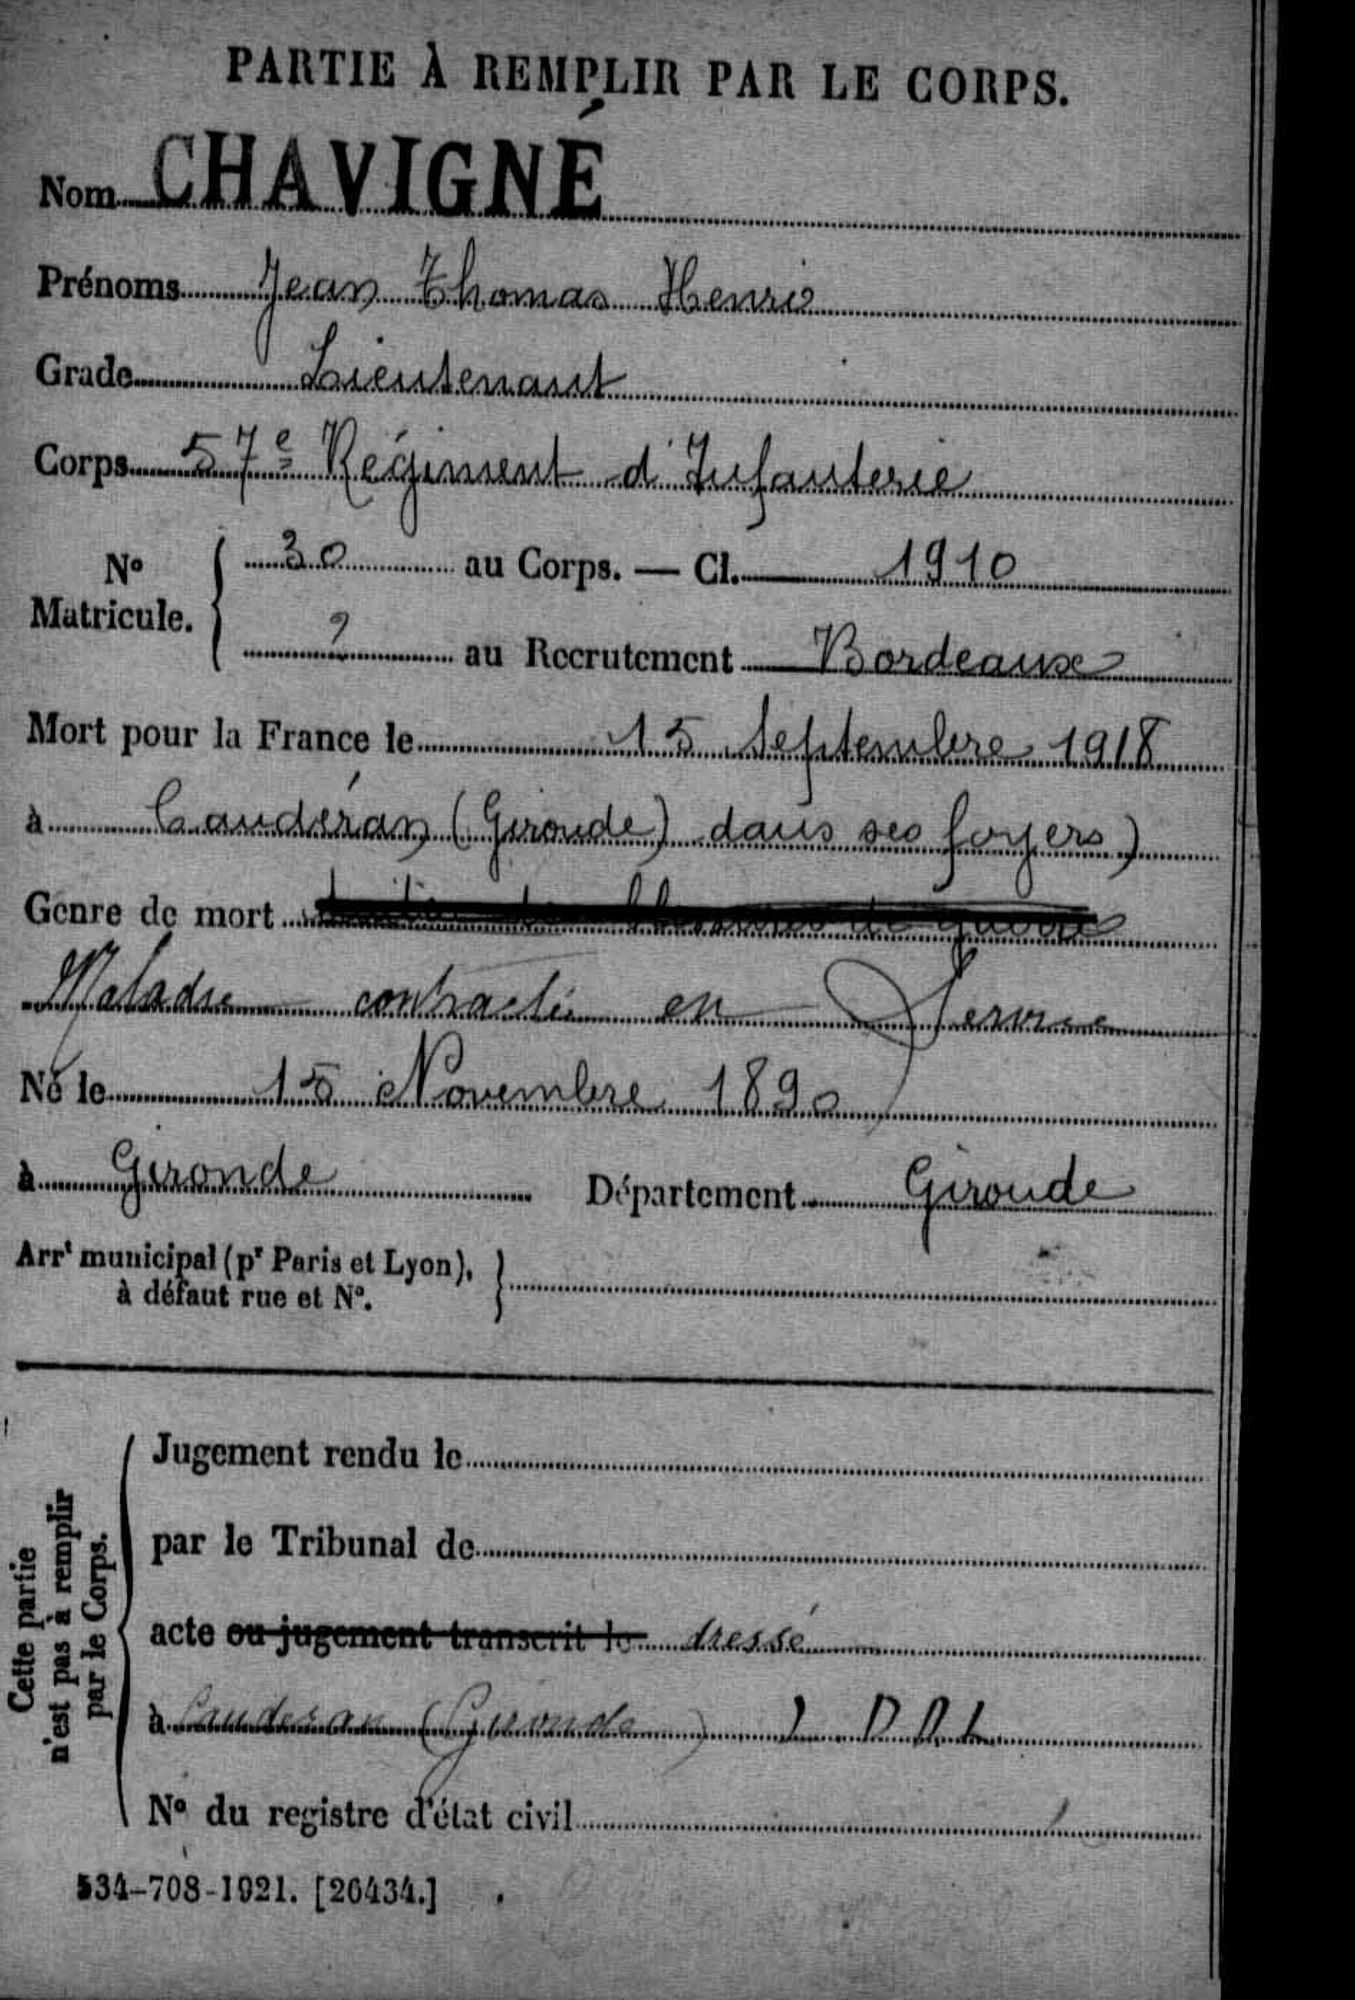 PARTIE À REMPLIR PAR LE CORPS.
Nom CHAVIGNÉ
Prénoms Jean Thomas Henri
Grade Lieutenant
Corps 57e Régiment d'Infanterie
No Matricule. { 30 au Corps. — Cl. 1910
? au Recrutement Bordeaux
Mort pour la France le 15 Septembre 1918
à Caudéran (Gironde) dans ses foyers)
Genre de mort blessures de guerre
Maladie contractée en Service
Né le 15 Novembre 1890
à Gironde Département Gironde
Arrt municipal (pr Paris et Lyon), à défaut rue et No. }
Cette partie n'est pas à remplir par le Corps.
Jugement rendu le
par le Tribunal de
acte ou jugement transcrit le dressé
à Caudéran (Gironde)
No du registre d'état civil
534-708-1921. [26434.]